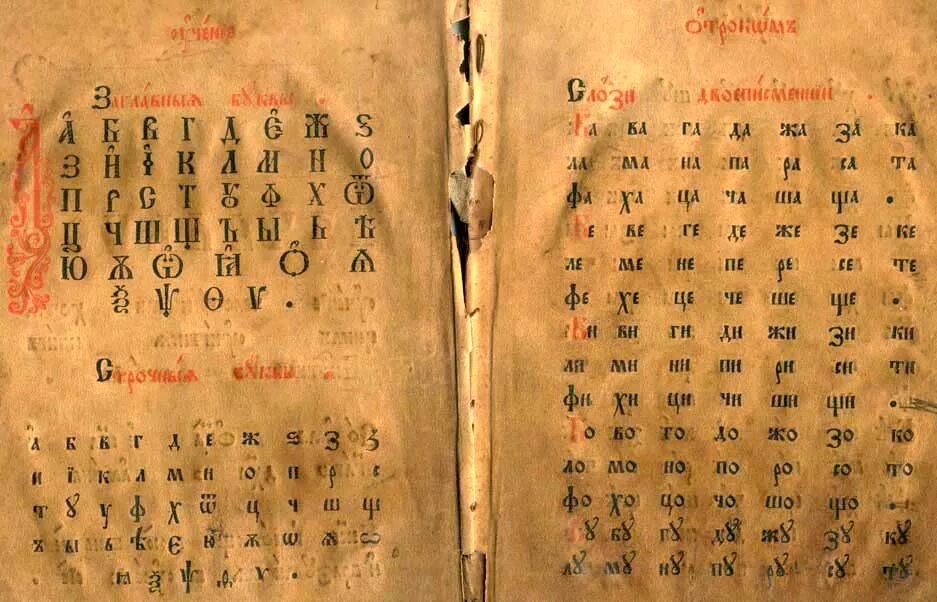 Оу҆че́нїе
Загла́вныѧ бꙋквы .
А Б В Г Д Є Ж Ѕ
З И Ї К Л М Н О
П Р С Т Ꙋ Ф Х Ѿ
Ц Ч Ш Щ Ъ Ы Ь Ѣ
Ю Ѫ Ѡ Ꙗ Ѻ Ѧ
Ѯ Ѱ Ѳ Ѵ .
Стро́чныѧ бꙋквы .
а б в г д е ж ѕ з ꙁ
и ї к л м н ю п р с
т ꙋ у ф х ѿ ц ч ш щ
ъ ы ь ѣ є ю ѫ ѡ ѧ
ѯ ѱ ѳ ѵ .
Ѻ҆трокѡ́мъ
Сло́зи двоепи́сменнїи .
Ба ва га да жа за ка
ла ма на па ра са та
фа ха ца ча ша ща .
Бе ве ге де же зе ке
ле ме не пе ре се те
фе хе це че ше ще .
Би ви ги ди жи зи ки
ли ми ни пи ри си ти
фи хи ци чи ши щи .
Бо во го до жо зо ко
ло мо но по ро со то
фо хо цо чо шо що .
Бꙋ вꙋ гꙋ дꙋ жꙋ зꙋ кꙋ
лꙋ мꙋ нꙋ пꙋ рꙋ сꙋ тꙋ